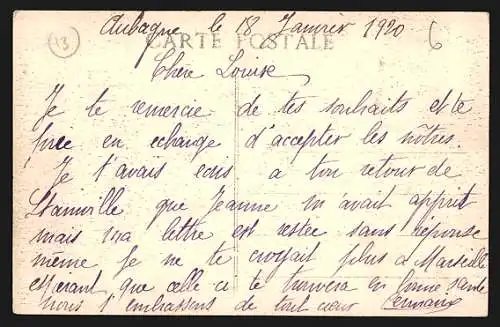 Aubagne le 18 Janvier 1920
13
6
CARTE POSTALE
Chère Louise
Je te remercie de tes souhaits et te
prie en echange d'accepter les nôtres.
Je t'avais ecris a ton retour de
que Jeanne m'avait apprit
mais ma lettre est restée sans reponse
même je ne te croyait plus a Marseille
esperant que celle ci te trouvera en bonne santé
nous t'embrassons de tout cœur Germaine